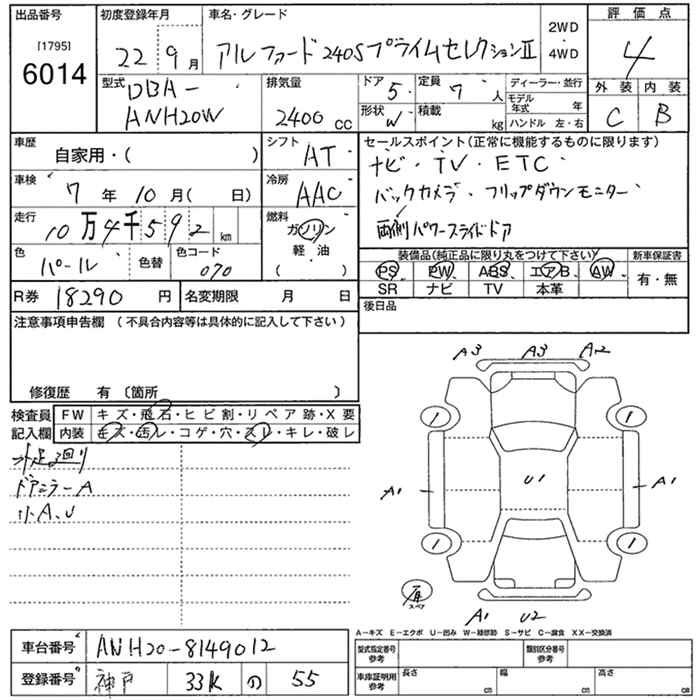 出品番号 初度登録年月 車名・グレード 評価点
[1795] 6014 22 9月 アルファード240SプライムセレクションⅡ 2WD・4WD 4
型式 DBA-ANH20W 排気量 2400 CC ドア 5 定員 7 人 ディーラー・並行 外装 内装
形状 W 積載 kg モデル年式 年 ハンドル 左・右 C B
車歴 自家用・( ) シフト AT セールスポイント(正常に機能するものに限ります)
車検 7年10月( 日) 冷房 AAC ナビ・TV・ETC
バックカメラ・フリップダウンモニター
走行 10万4千592 km 燃料 ガソリン 軽・油 ( ) 両側パワースライドドア
色 パール 色替 色コード 070 装備品(純正品に限り丸をつけて下さい) 新車保証書
PS PW ABS エアB AW 有・無
R券 18290 円 名変期限 月 日 SR ナビ TV 本革
注意事項申告欄(不具合内容等は具体的に記入して下さい) 後日品
修復歴 有〔箇所 〕
検査員記入欄 FW キズ・飛石・ヒビ割・リペア跡・X要
内装 キズ・汚レ・コゲ・穴・スレ・キレ・破レ
外足廻り
ドアミラーA
小A、U
A3 A3 A12
1 1
A1 U1 A1
1 1
スペア
A1 U2
A-キズ E-エクボ U-凹み W-補修跡 S-サビ C-腐食 XX-交換済
車台番号 ANH20-8149012 型式指定番号 参考 類別区分番号 参考
登録番号 神戸 33K の 55 車庫証明用 参考 長さ cm 幅 cm 高さ cm